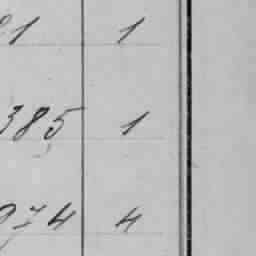 21 1
385 1
974 4